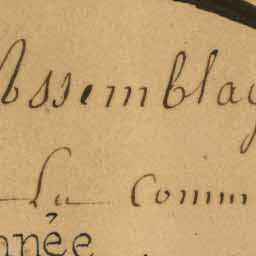 Assemblag
La Comm
nnée